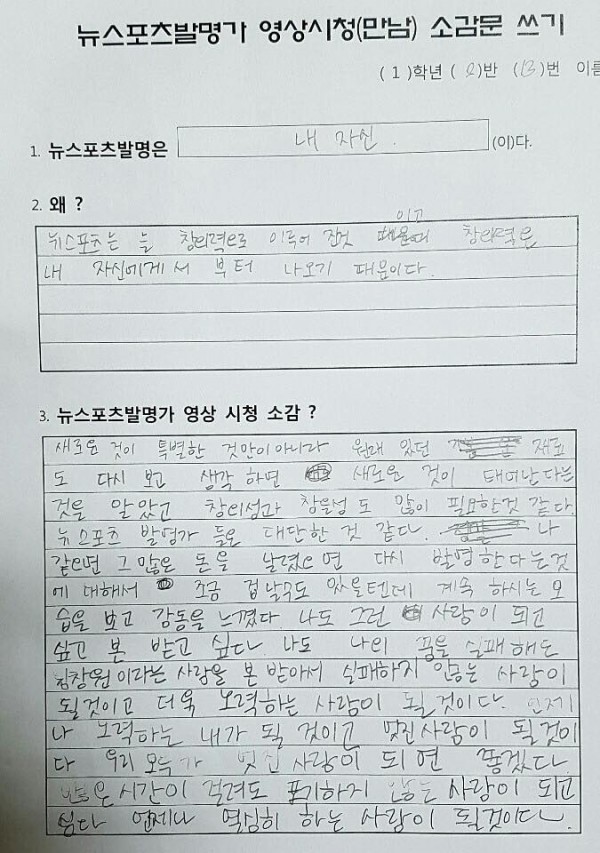 뉴스포츠발명가 영상시청(만남) 소감문 쓰기
( 1 )학년 ( 2 )반 (13)번 이름
1. 뉴스포츠발명은 내 자신. (이)다.
2. 왜 ?
이고
뉴스포츠는 늘 창의력으로 이루어 진것 창의력은
내 자신에게서 부터 나오기 때문이다.
3. 뉴스포츠발명가 영상 시청 소감 ?
새로운 것이 특별한 것만이아니라 원래 있던 재료
도 다시 보고 생각 하면 새로운 것이 태어난다는
것을 알았고 창의성과 창의성도 많이 필요한것 같다.
뉴스포츠 발명가 들은 대단한 것 같다. 나
같으면 그 많은 돈을 날렸으면 다시 발명한다는것
에 대해서 조금 겁날수도 있을텐데 계속 하시는 모
습을 보고 감동을 느꼈다. 나도 그런 사람이 되고
싶고 본 받고 싶다. 나도 나의 꿈을 실패해도
이라는 사람을 본 받아서 실패하지 않는 사람이
될것이고 더욱 노력하는 사람이 될것이다. 언제
나 노력하는 내가 될 것이고 멋진사람이 될것이
다 우리 모두가 멋진 사람이 되면 좋겠다
많은시간이 걸려도 포기하지 않는 사람이 되고
싶다 언제나 열심히 하는 사람이 될것이다.